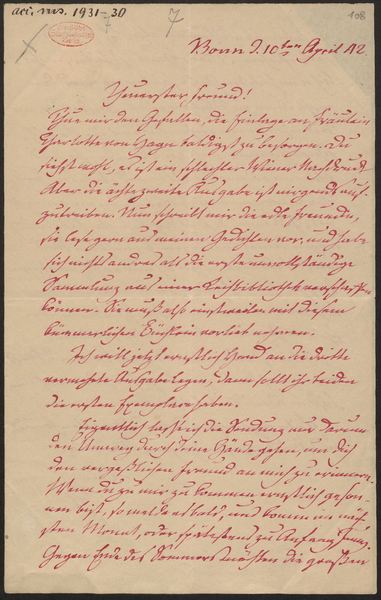 acc. ms. 1931-30
7
108
Bonn d. 10ten April 42
Theuerster Freund!
Thue mir den Gefallen, die Einlage an Fräulein
Charlotte von Hagn baldigst zu besorgen. Du
siehst wohl, es ist ein schlechter Wiener Nachdruck.
Aber die ächte zweite Ausgabe ist nirgends auf-
zutreiben. Nun schreibt mir die edle Freundin,
sie lese gern aus meinen Gedichten vor, und habe
sich nichts andres als die erste unvollständige
Sammlung aus einer Leihbibliothek verschaffen
können. Sie muß also einstweilen mit diesem
kümmerlichen Büchlein vorlieb nehmen.
Ich will jetzt ernstlich Hand an die dritte
vermehrte Ausgabe legen, dann sollt ihr beiden
die ersten Exemplare haben.
Eigentlich lasse ich die Sendung nur darum
den Umweg durch deine Hände gehen, um dich
den vergeßlichen Freund an mich zu erinnern.
Wenn du zu mir zu kommen ernstlich geson-
nen bist, so melde es bald, und komm im näch-
sten Monat, oder spätestens zu Anfang Juny.
Gegen Ende des Sommers möchten die großen